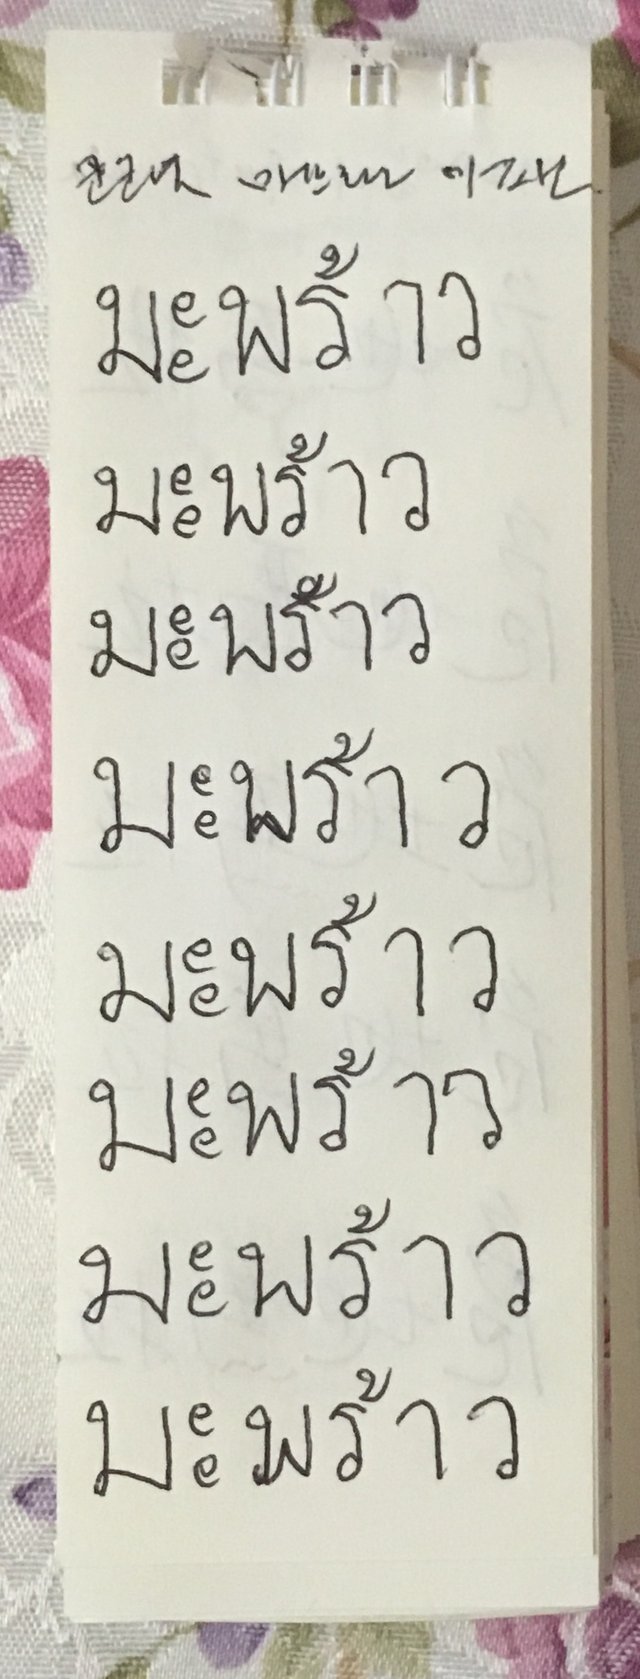 มะพร้าว
มะพร้าว
มะพร้าว
มะพร้าว
มะพร้าว
มะพร้าว
มะพร้าว
มะพร้าว